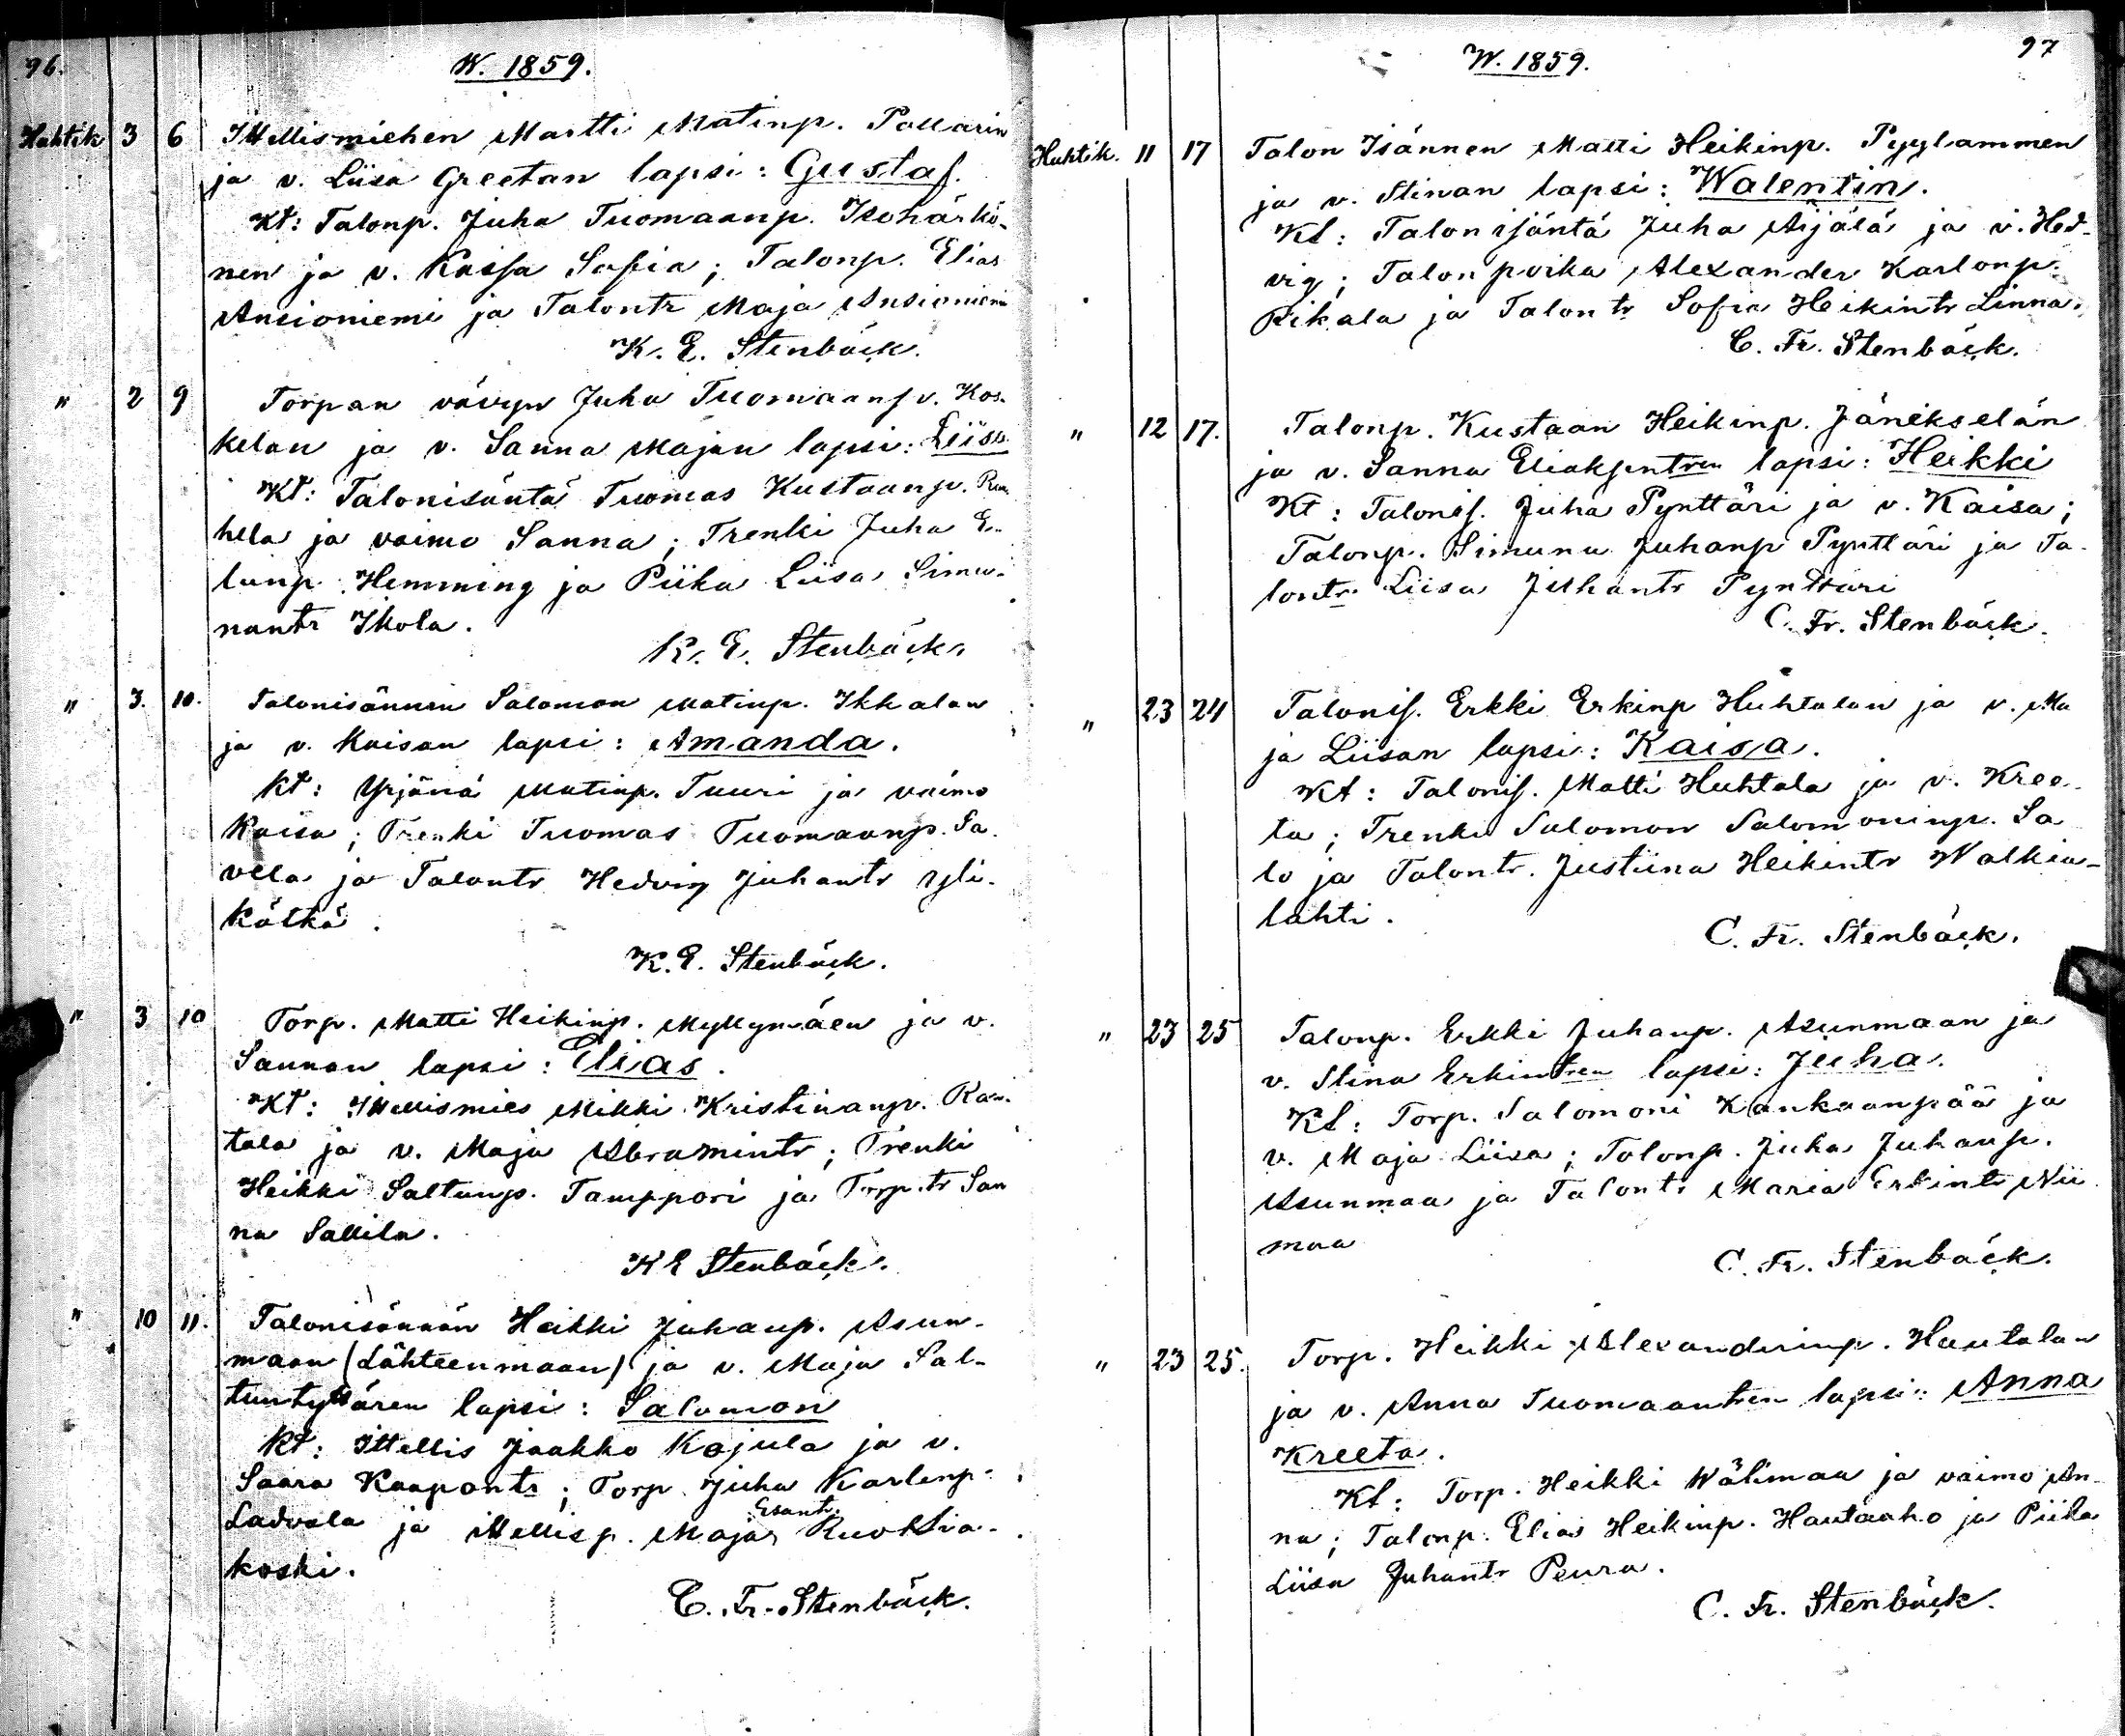 96.
W. 1859.
Huhtik 3 6 Ittellismiehen Martti Matinp. Pollarin
ja v. Liisa Greetan lapsi: Gustaf.
Kt: Talonp. Juha Tuomaanp. Isohärkö-
nen ja v. Kaissa Sofia; Talonp. Elias
Ansioniemi ja Talontr Maja Ansioniemi
K. E. Stenbäck.
" 2 9 Torpan vävyn Juha Tuomaanp v. Kos-
kelan ja v. Sanna Majan lapsi: Liisa
Kt: Talonisäntä Tuomas Kustaanp.
hela ja vaimo Sanna; Trenki Juha E-
lianp. Hemming ja Piika Liisa Simu-
nantr Ikola.
K. E. Stenbäck.
" 3. 10. Talonisännen Salomon Matinp. Ikkalan
ja v. Kaisan lapsi: Amanda.
Kt: Yrjänä Matinp. Tuuri ja vaimo
Kaisa; Trenki Tuomas Tuomaanp. Sa-
vela ja Talontr Hedvig Juhantr Yli-
kätkä.
K. E. Stenbäck.
" 3 10 Torp. Matti Heikinp. Myllymäen ja v.
Sannan lapsi: Elias.
Kt: Ittellismies Mikki Kristianp. Rau-
tala ja v. Maja Abramintr; Trenki
Heikki Saltunp. Tamppari ja Torp.tr San
na Sallila.
K E Stenbäck.
" 10 11. Talonisännän Heikki Juhanp. Asun-
maan (Lähteenmaan) ja v. Maja Sal-
tuntyttären lapsi: Salomon
Kt: Ittellis Jaakko Kojula ja v.
Saara Kaapontr; Torp. Juha Karlinp.
Ladvala ja ittellisp. Maja Esantr Ruoktia-
koski.
C. Fr. Stenbäck.
97
W. 1859.
Huhtik. 11 17 Talon Isännen Matti Heikinp. Pyylammen
ja v. Stinan lapsi: Walentin.
Kt: Talon isäntä Juha Äijälä ja v. Hed-
vig; Talon poika Alexander Karlonp.
Rikala ja Talontr Sofia Heikintr Linna.
C. Fr. Stenbäck.
" 12 17. Talonp. Kustaan Heikinp. Jänekselän
ja v. Sanna Eliaksentren lapsi: Heikki
Kt: Talonis. Juha Pynttäri ja v. Kaisa;
Talonp. Simuna Juhanp Pynttäri ja Ta-
lontr. Liisa Juhantr Pynttäri
C. Fr. Stenbäck.
" 23 24 Talonis. Erkki Erkinp Huhtalan ja v. Ma
ja Liisan lapsi: Kaisa.
Kt: Talonis. Matti Huhtala ja v. Kree-
ta; Trenki Salomon Salomoninp. Sa
lo ja Talontr. Justiina Heikintr Walkia-
lahti.
C. Fr. Stenbäck.
" 23 25 Talonp. Erkki Juhanp. Asunmaan ja
v. Stina Erkintren lapsi: Juha.
Kt: Torp. Salomoni Kankaanpää ja
v. Maja Liisa; Talonp. Juha Juhanp.
Asunmaa ja Talontr Maria Erkintr Nii
maa
C. Fr. Stenbäck.
" 23 25. Torp. Heikki Alexanderinp. Hautalan
ja v. Anna Tuomaantren lapsi: Anna
Kreeta.
Kt: Torp. Heikki Wälimaa ja vaimo An-
na; Talonp. Elias Heikinp. Hautaaho ja Piika
Liisa Juhantr Peura.
C. Fr. Stenbäck.